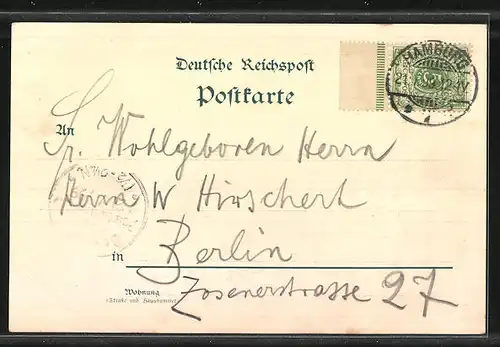 Deutsche Reichspost
Postkarte
HAMBURG
An Sr. Wohlgeboren Herrn
Herrn W Hirschert
in Berlin
Wohnung
(Straße und Hausnummer)
Zosenerstrasse 27